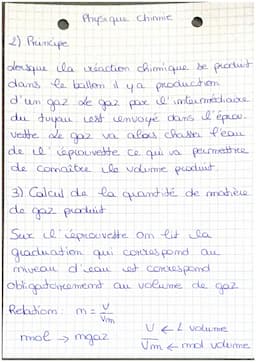 Physique chimie
2) Principe
Lorsque la réaction chimique se produit
dans le ballon il y a production
d'un gaz le gaz par l'intermédiaire
du tuyau est envoyé dans l'éprou-
vette le gaz va alors chasser l'eau
de l'éprouvette ce qui va permettre
de connaître le volume produit.
3) Calcul de la quantité de matière
de gaz produit
Sur l'éprouvette on lit la
graduation qui correspond au
niveau d'eau et correspond
obligatoirement au volume de gaz
Relation : n = V/Vm
mol → ngaz
V ← L volume
Vm ← mol volume